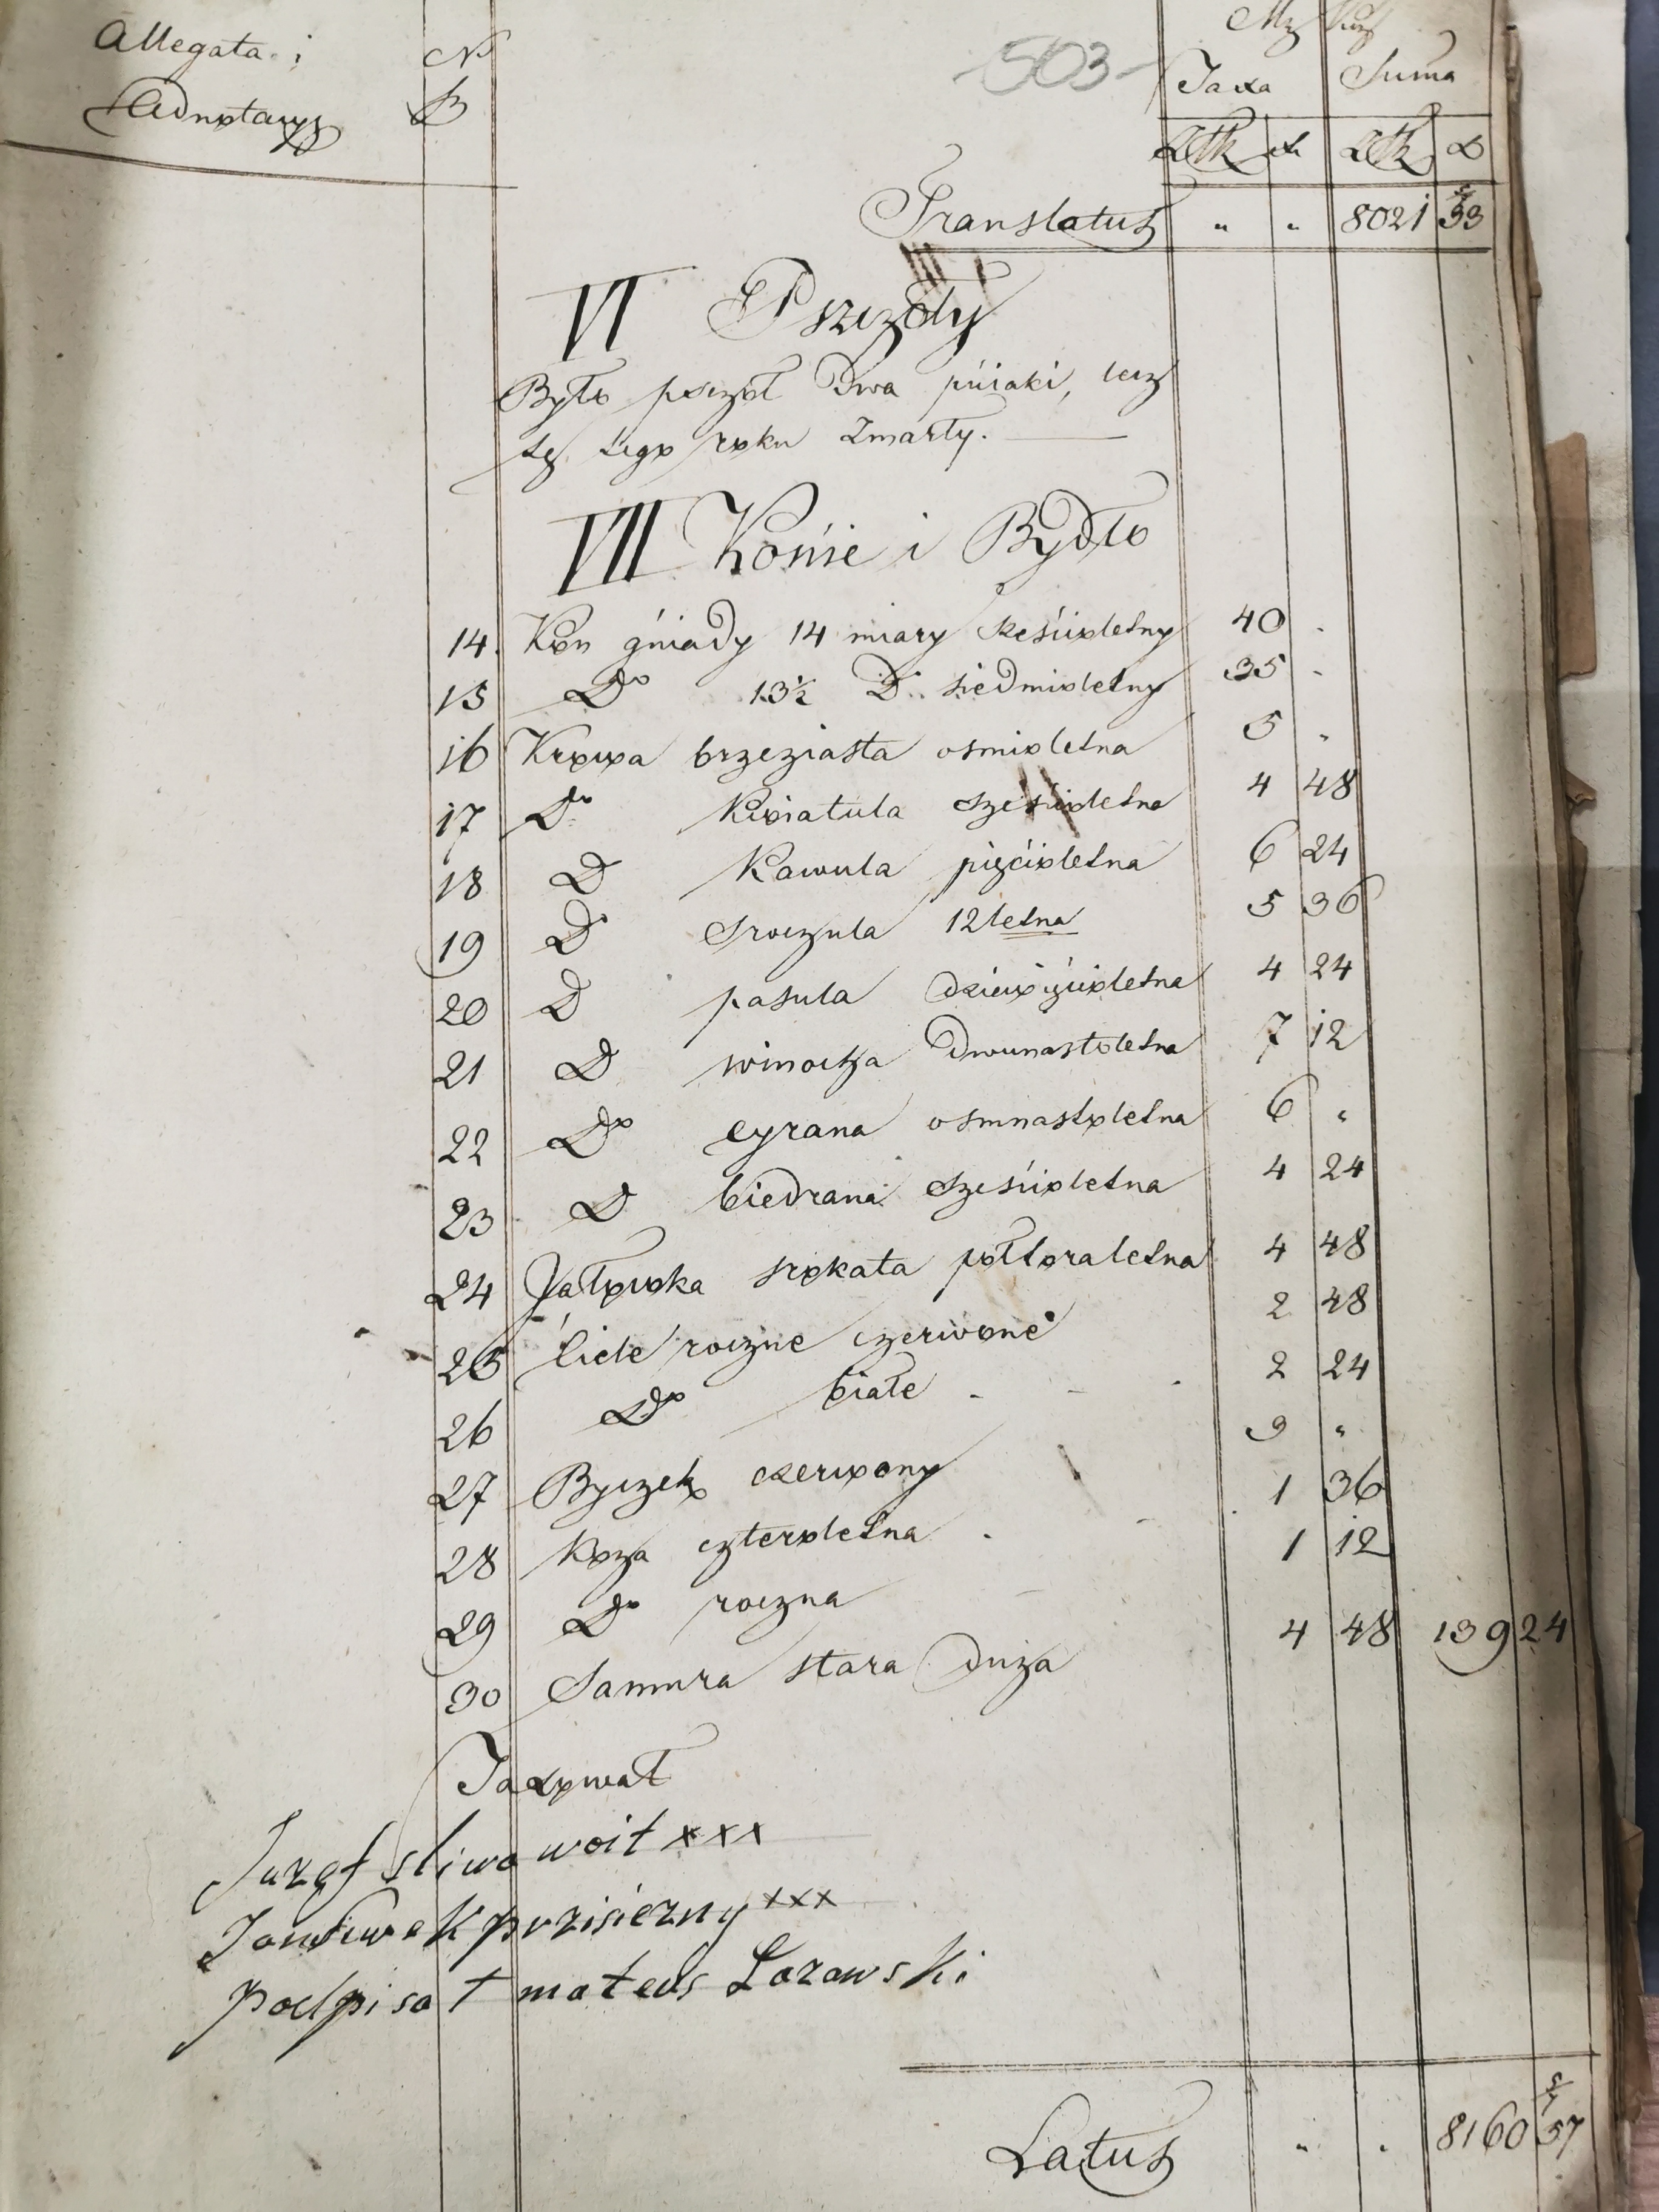 Allegata i
Adnotacys
N
B
503
Mz Kug
Taxa
Suma
ZłR
x
ZłR
x
Translatus " " 8021 33
VI Pszczoły
Było pszczół Dwa pniaki, lecz
te tego roku Zmarły.
VII Konie i Bydło
14. Kon gniady 14 miary sześcioletny 40 .
15 Do 13½ D. siedmioletny 35 .
16 Krowa brzeziasta osmioletna 5 .
17 Do Kwiatula sześcioletna 4 48
18 D Kawula pięcioletna 6 24
19 Do Sroczula 12letna 5 36
20 D pasula dziewięcioletna 4 24
21 D winocha Dwunastoletna 7 12
22 Do cyrana osmnastoletna 6 "
23 D biedrana sześcioletna 4 24
24 Jałowka srokata półtoraletna 4 48
25 Ciele roczne czerwone 2 48
26 Do białe 2 24
27 Byczek czerwony 3 "
28 Koza czteroletna 1 36
29 Do roczna 1 12
30 Samura stara Duża 4 48 139 24
Taxował
Juzef sliwa woit xxx
przisiezny xxx
podpisat mateus Lozowski
Latus " . 8160 57